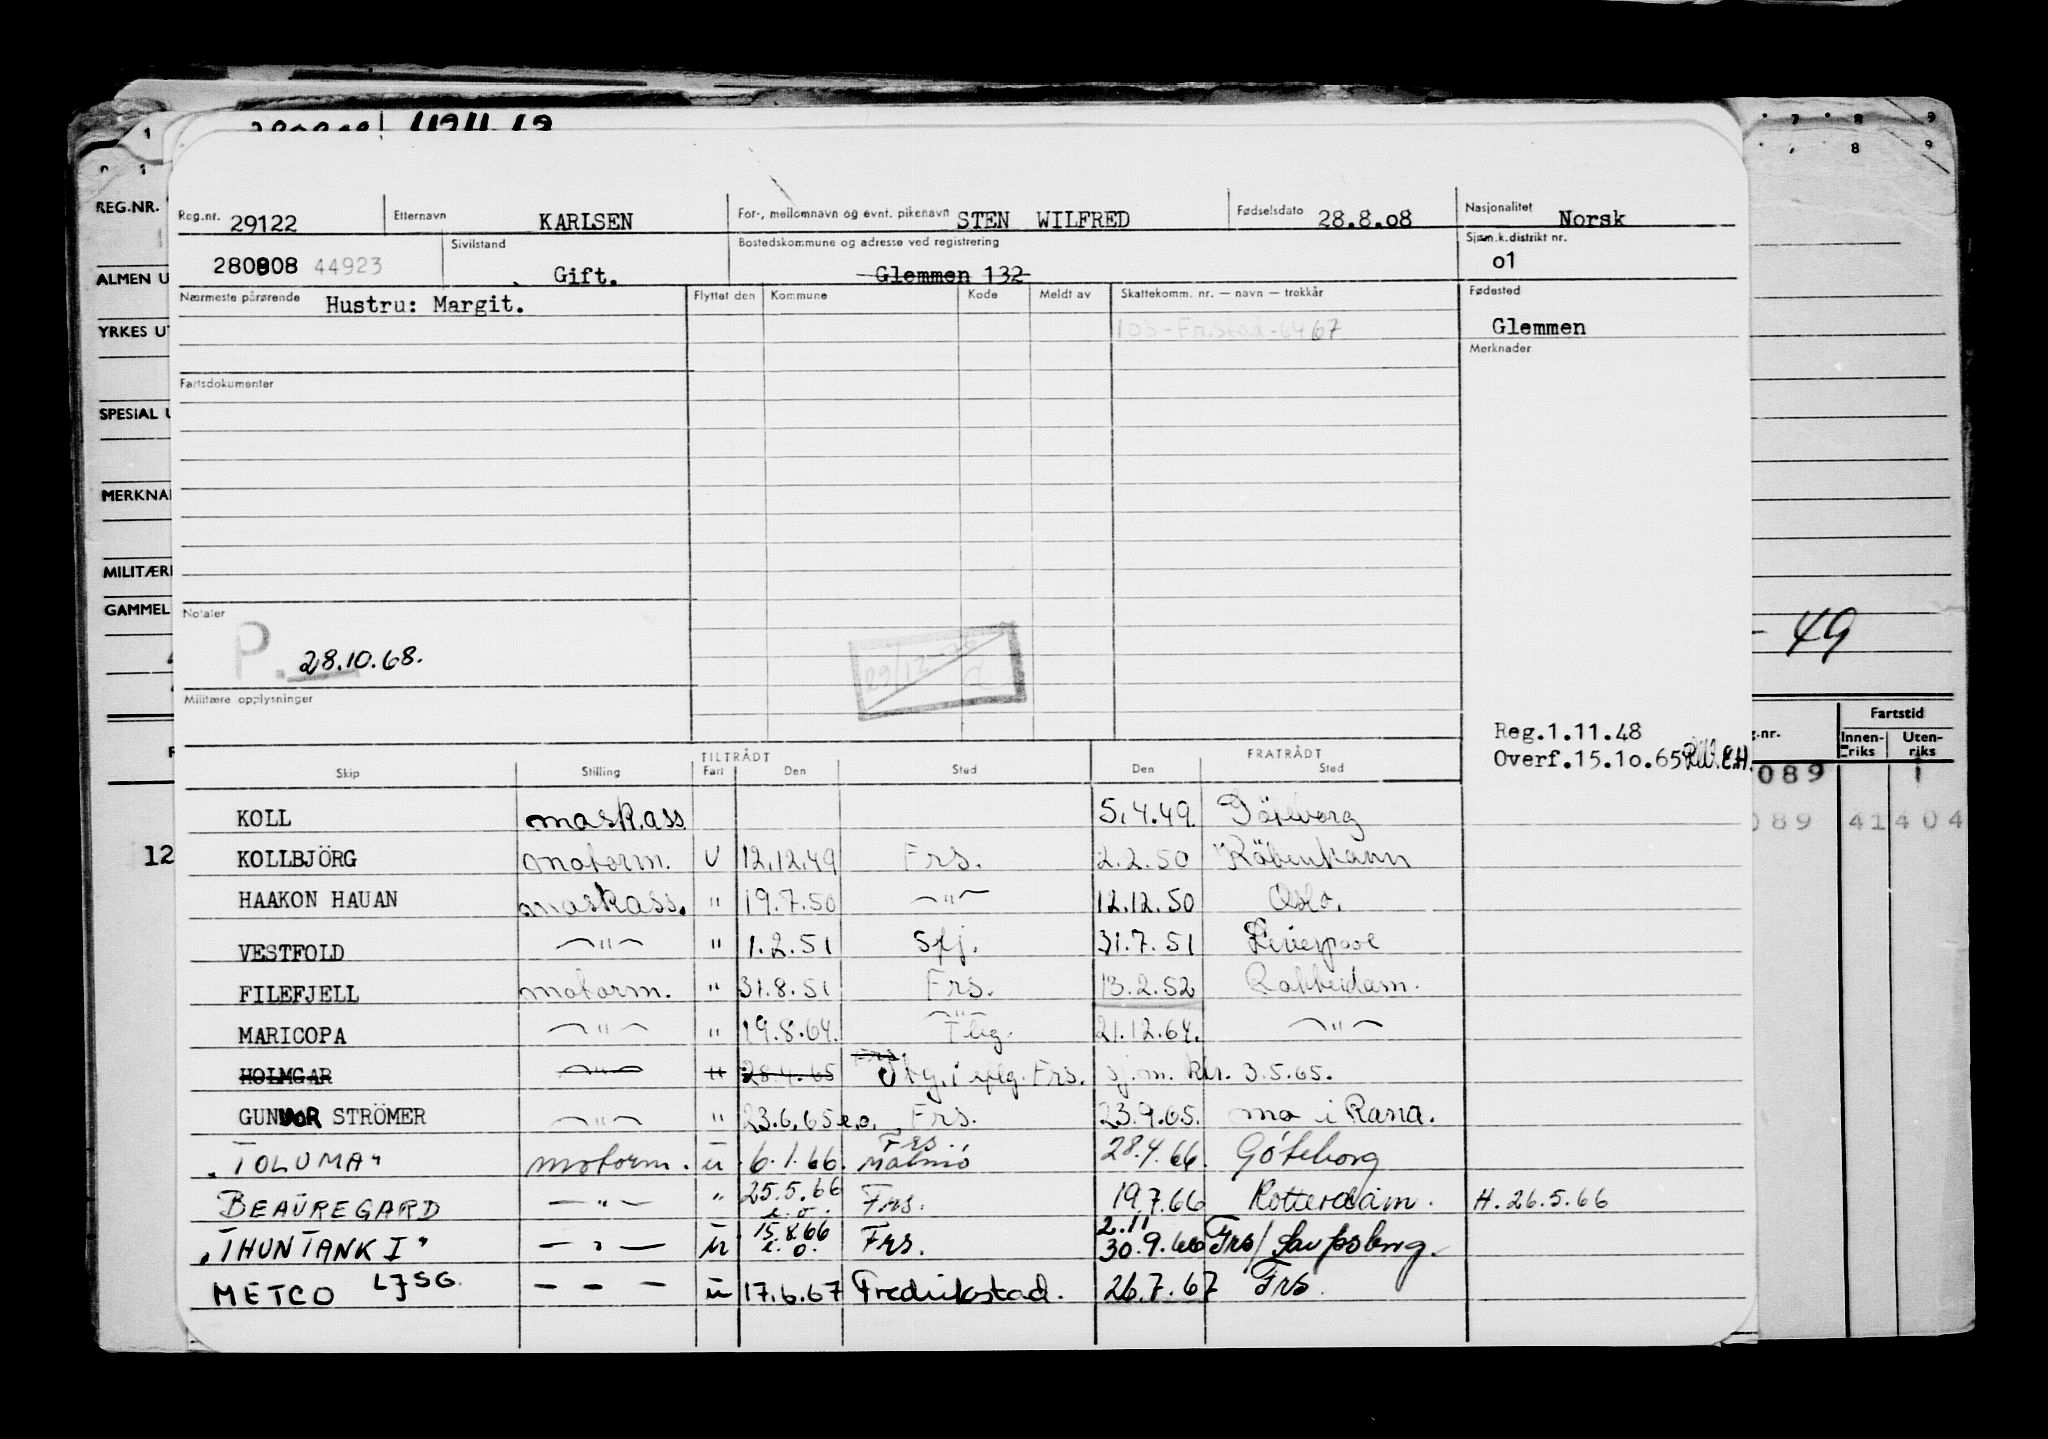 Reg.nr. 29122 Etternavn KARLSEN For-, mellomnavn og evnt. pikenavn STEN WILFRED Fødselsdato 28.8.o8 Nasjonalitet Norsk
280808 44923 Sivilstand Gift. Bostedskommune og adresse ved registrering Glemmen 132 Sjøm.k.distrikt nr. o1
Nærmeste pårørende Hustru: Margit. Flyttet den Kommune Kode Meldt av Skattekomm. nr. — navn — trekkår Fødested
105-Fr.stad-64 67 Glemmen
Merknader
Fartsdokumenter
Notater
P. 28.10.68.
29/12-76
Militære opplysninger
Reg.1.11.48
Overf.15.1o.65 E.H.
TILTRÅDT FRATRÅDT
Skip Stilling Fart Den Sted Den Sted
KOLL mask.ass 5.4.49 Göteborg
KOLLBJÖRG motorm. U 12.12.49 Frs. 2.2.50 Köbenhavn
HAAKON HAUAN maskass. " 19.7.50 —"— 12.12.50 Oslo.
VESTFOLD —"— " 1.2.51 Sfj. 31.7.51 Liverpool
FILEFJELL motorm. " 31.8.51 Frs. 13.2.52 Rotterdam.
MARICOPA —"— " 19.8.64. —"— 21.12.64. —"—
HOLMGAR —"— " 28.4.65 Frs. sj.m. 3.5.65.
GUNVOR STRÖMER —"— " 23.6.65 e.o. Frs. 23.9.65. mo i Rana.
"TOLUMA" motorm. u 6.1.66. Frs. Malmö 28.4.66. Göteborg
BEAUREGARD —"— " 25.5.66 e.o. Frs. 19.7.66 Rotterdam. H. 26.5.66
"THUNTANK I" —"— u 15.8.66 e.o. Frs. 2.11 30.9.66 Frs/
METCO LJSG — — — u 17.6.67 Fredrikstad. 26.7.67 Frs.
REG.NR.
ALMEN U
YRKES UT
SPESIAL U
MERKNA
MILITÆR
GAMMEL
12
7 8 9
8 9
- 49
g.nr. Fartstid
Innen-riks Uten-riks
089 1
089 41 404